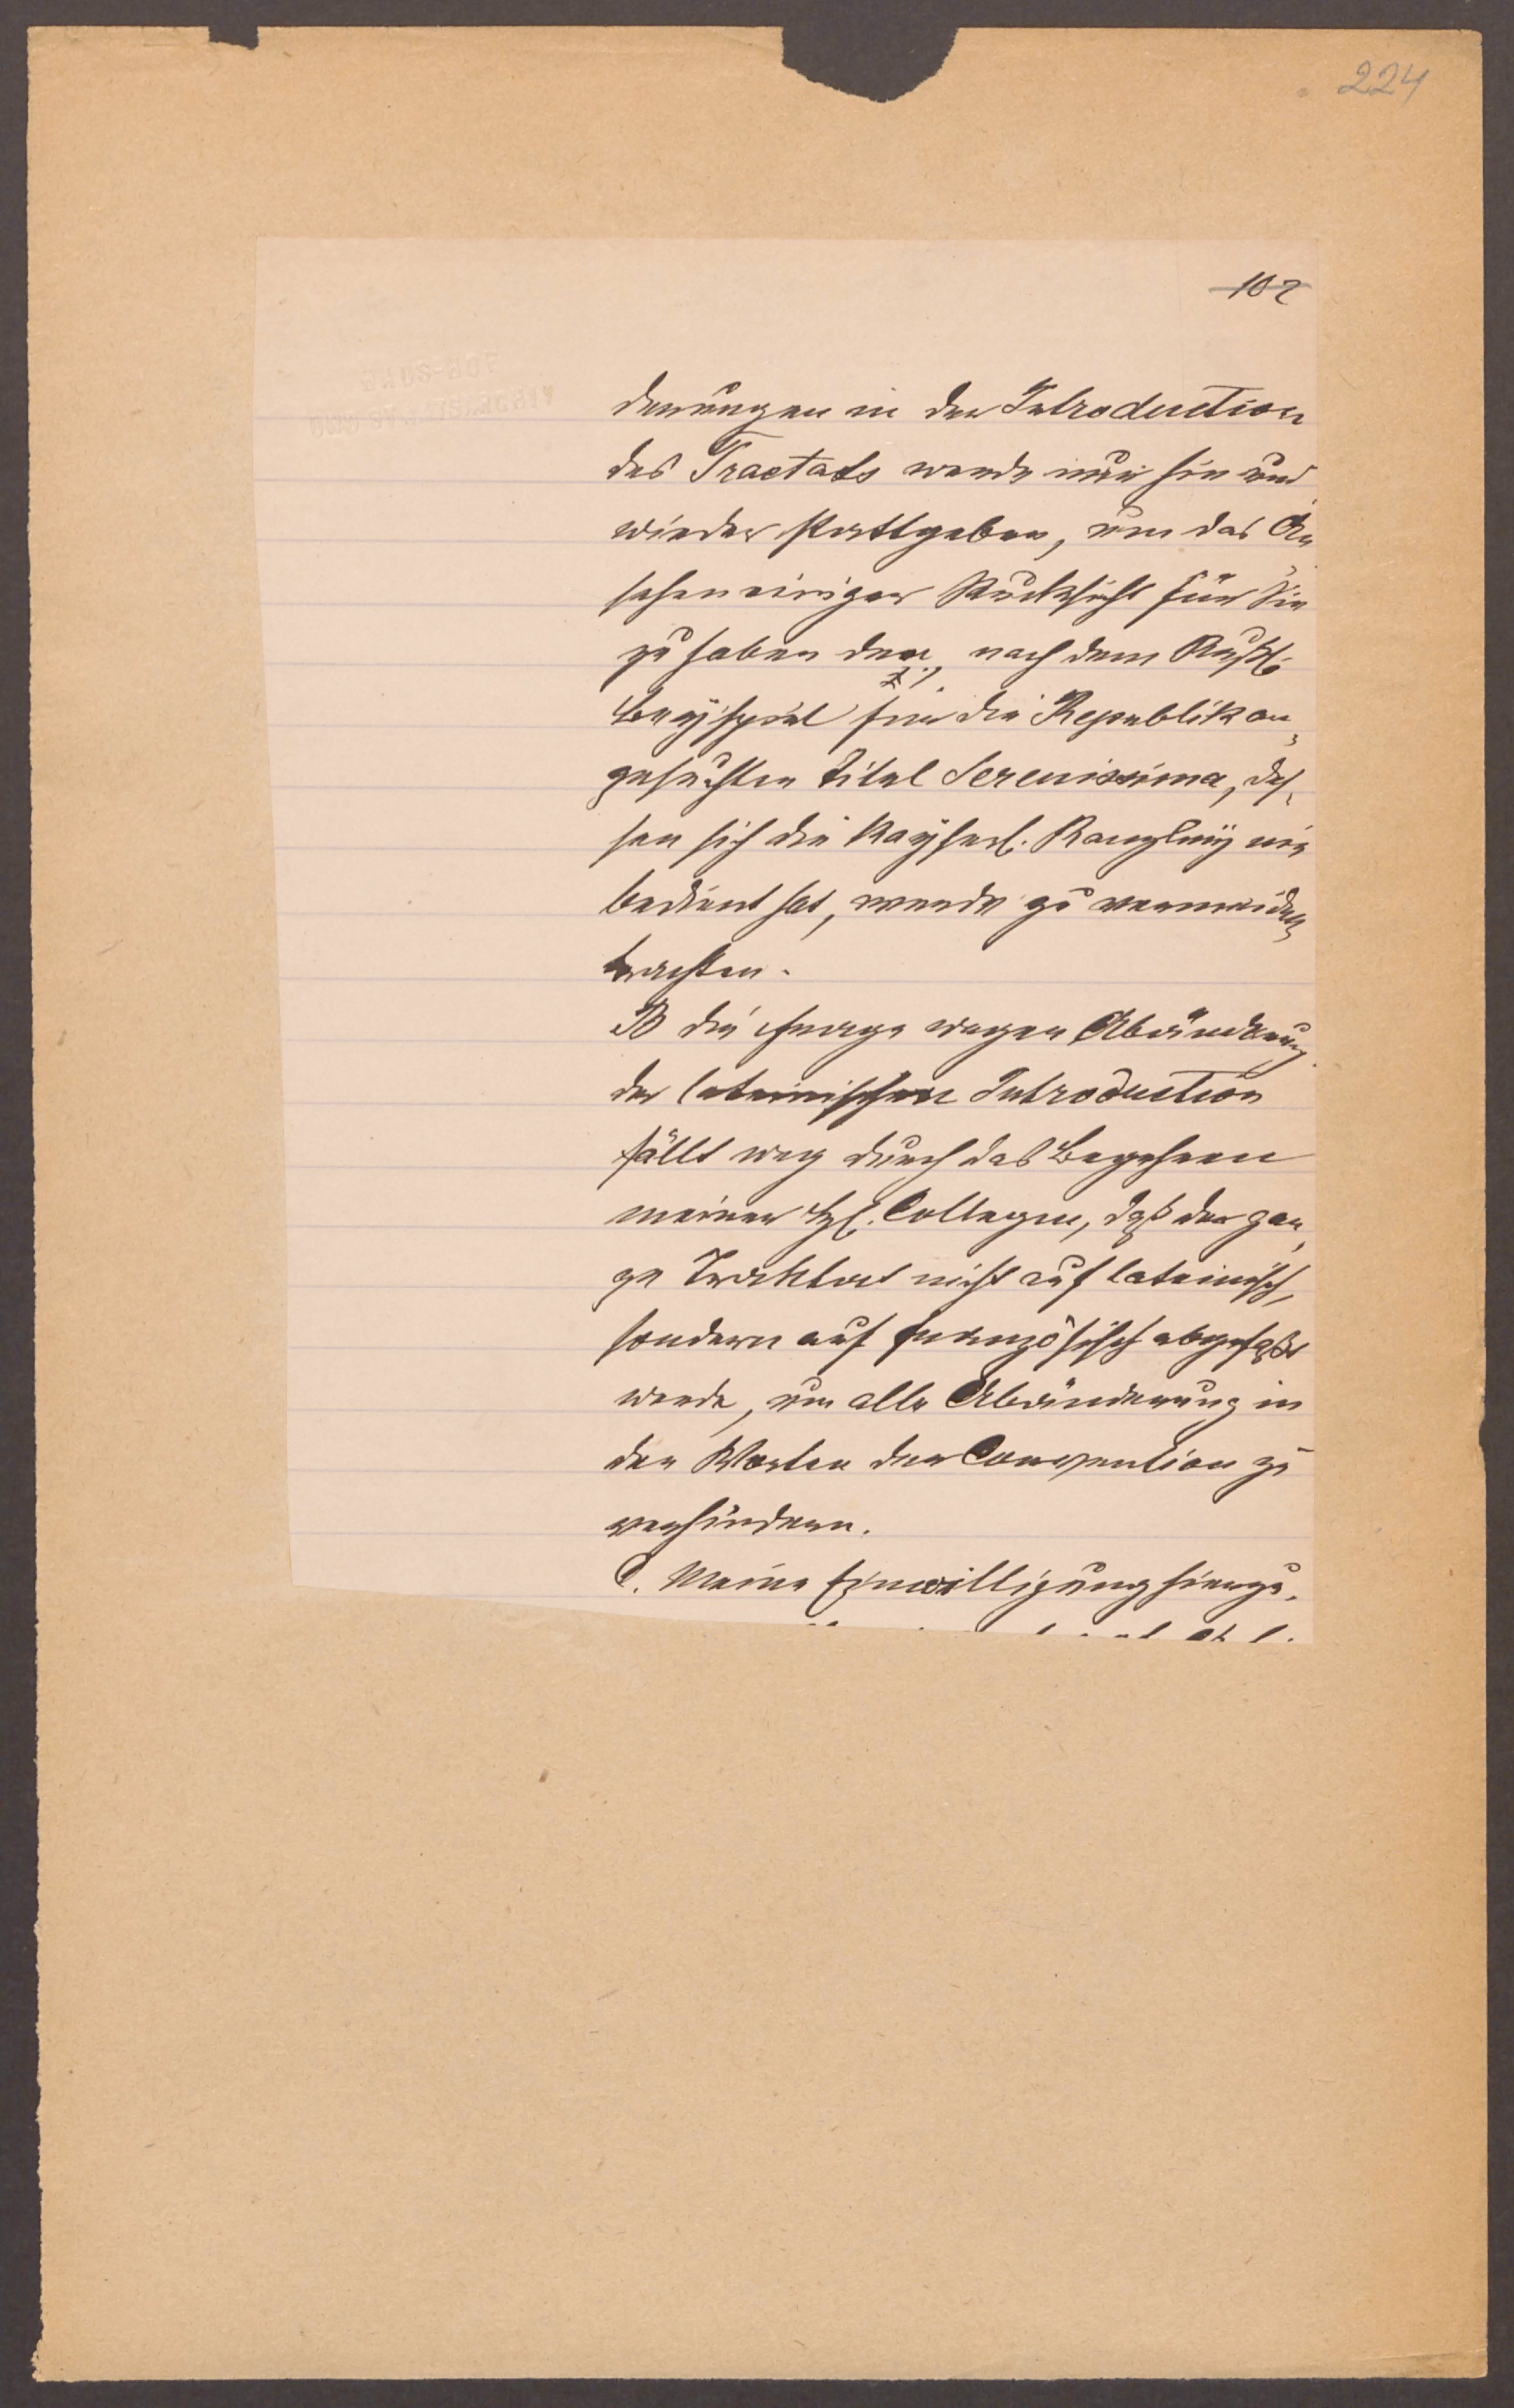 224
102
derungen in der Introduction
des Tractats werde nur hin und
wieder stattgeben, um das An
sehen einiger Rücksicht für Sie
zu haben den, nach dem Rußl.
Beyspiel für die Republik an
gesuchten Titel Serenissima, des
sen sich die Kayserl. Kanzley nie
bedient hat, werde zu vermeiden
trachten.
B die Frage wegen Abänderung
der lateinischen Introduction
fällt weg durch das Begehren
meiner Hl. Collegen, daß der gan
ze Traktat nicht auf lateinisch,
sondern auf französisch abgefaßt
werde, um alle Abänderung in
den Worten der Convention zu
verhindern.
C. Meine Einwilligung hierzu,